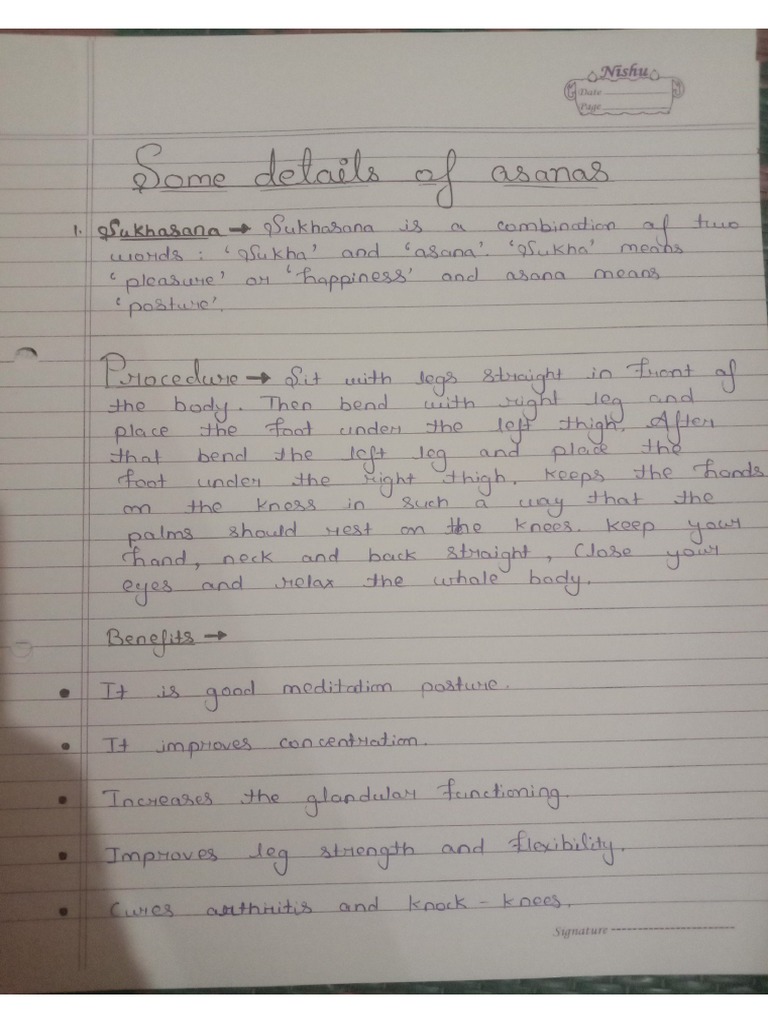 Nishu
Date
Page
Some details of asanas
1. Sukhasana → Sukhasana is a combination of two
words : 'Sukha' and 'asana'. 'Sukha' means
'pleasure' or 'happiness' and asana means
'posture'.
Procedure → Sit with legs straight in front of
the body. Then bend with right leg and
place the foot under the left thigh. After
that bend the left leg and place the
foot under the right thigh. Keeps the hands
on the kness in such a way that the
palms should rest on the knees. Keep your
hand, neck and back straight, Close your
eyes and relax the whole body.
Benefits →
• It is good meditation posture.
• It improves concentration.
• Increases the glandular functioning.
• Improves leg strength and flexibility.
• Cures arthritis and knock - knees.
Signature